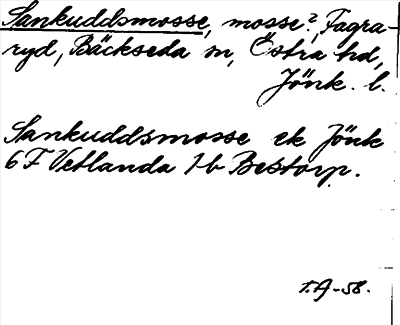 Sankuddsmosse, mosse?, Fagra-
ryd, Bäckseda sn, Östra hd,
Jönk. l.
Sankuddsmosse ek Jönk
6F Vetlanda 1b Bestorp.
T.A-58.